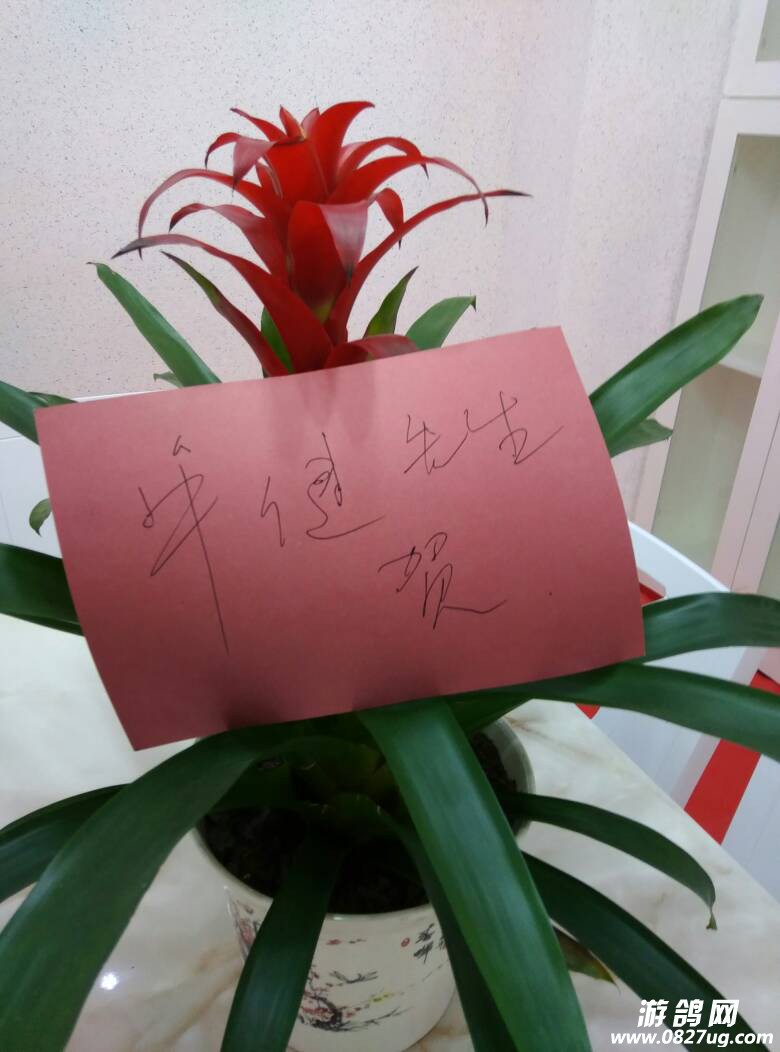 牟健先生
贺
游鸽网
www.0827ug.com